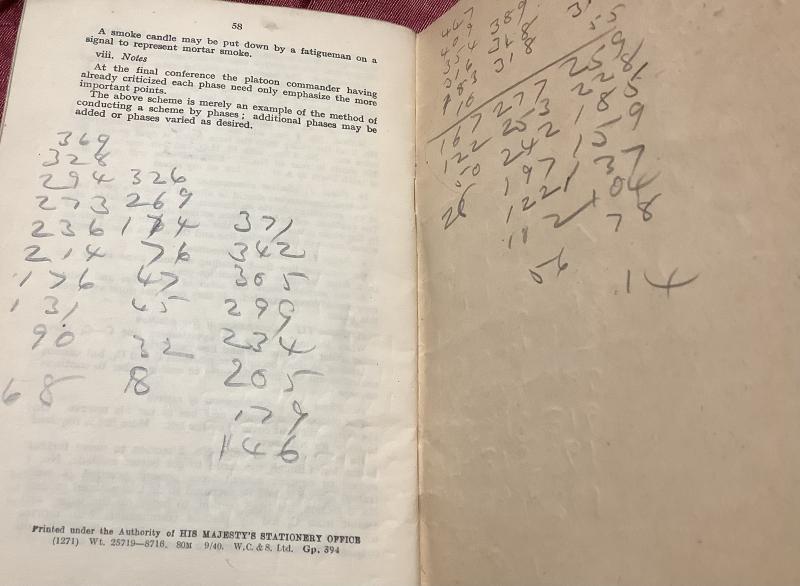 58
A smoke candle may be put down by a fatigueman on a
signal to represent mortar smoke.
viii. Notes
At the final conference the platoon commander having
already criticized each phase need only emphasize the more
important points.
The above scheme is merely an example of the method of
conducting a scheme by phases; additional phases may be
added or phases varied as desired.
369
328
294 326
273 269
236 174 371
214 76 342
176 47 305
131 45 299
90 32 234
68 18 205
179
146
Printed under the Authority of HIS MAJESTY'S STATIONERY OFFICE
(1271) Wt. 25719—8716. 80M 9/40. W.C. & S. Ltd. Gp. 394
447 389
318
167 277 259
122 253 228
242 185
26 197 159
1221 137
112 104
78
56 14